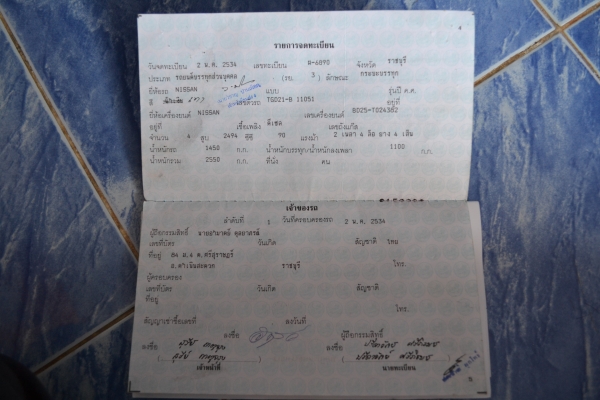 รายการจดทะเบียน
วันจดทะเบียน 2 พ.ค. 2534 เลขทะเบียน 8-6890 จังหวัด ราชบุรี
ประเภท รถยนต์บรรทุกส่วนบุคคล (รย. 3) ลักษณะ กระบะบรรทุก
ยี่ห้อรถ NISSAN แบบ รุ่นปี ค.ศ.
สี เลขตัวรถ TGD21-B 11051 อยู่ที่
ยี่ห้อเครื่องยนต์ NISSAN เลขเครื่องยนต์ BD25-T024382
อยู่ที่ เชื้อเพลิง ดีเซล เลขถังแก๊ส
จำนวน 4 สูบ 2494 ซีซี 90 แรงม้า 2 เพลา 4 ล้อ ยาง 4 เส้น
น้ำหนักรถ 1450 ก.ก. น้ำหนักบรรทุก/น้ำหนักลงเพลา 1100 ก.ก.
น้ำหนักรวม 2550 ก.ก. ที่นั่ง คน
เจ้าของรถ
ลำดับที่ 1 วันที่ครอบครองรถ 2 พ.ค. 2534
ผู้ถือกรรมสิทธิ์
เลขที่บัตร วันเกิด สัญชาติ ไทย
ที่อยู่ 84 ม.4 ต.ศรีสุราษฎร์
อ.ดำเนินสะดวก ราชบุรี โทร.
ผู้ครอบครอง
เลขที่บัตร วันเกิด สัญชาติ
ที่อยู่
โทร.
สัญญาเช่าซื้อเลขที่ ลงวันที่
ลงชื่อ ผู้ถือกรรมสิทธิ์
ลงชื่อ ลงชื่อ
เจ้าหน้าที่ นายทะเบียน